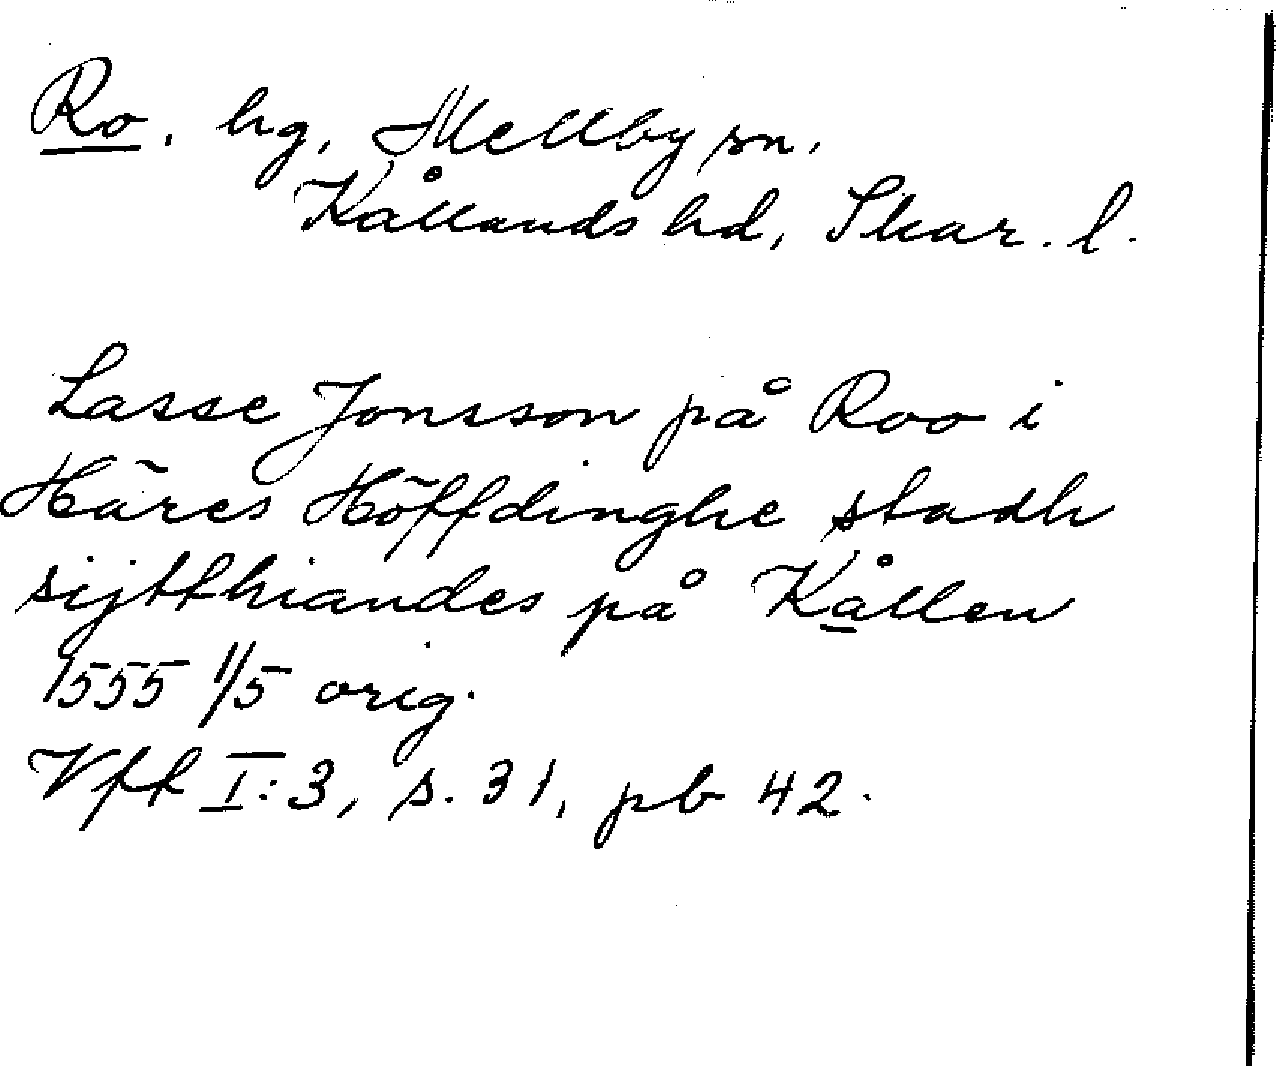 Ro, hg, Mellby sn,
Kållands hd, Skar. l.
Lasse Jonsson på Roo i
Häres Höffdinghe stadh
sijtthiandes på Kållen
1555 1/5 orig.
Vff I:3, s. 31, pb 42.